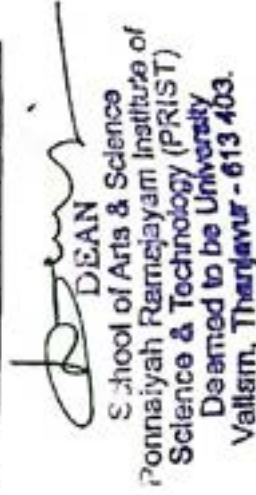 DEAN
School of Arts & Science
Ponnaiyah Ramajayam Institute of
Science & Technology (PRIST)
Deemed to be University
Vallam, Thanjavur - 613 403.